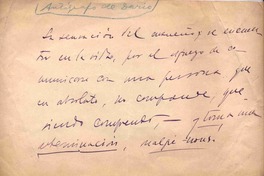 (Autógrafo de Darío)
La sensación del ensueño, se encuen
tra en la vida, por el apego de co
municarse con una persona que
en absoluto, no comprende que
siendo comprende, — y toma una
determinación,